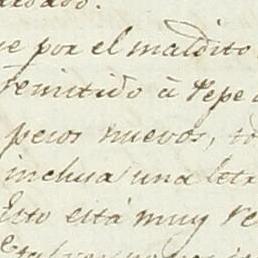 e por el maldito
remitido á Pepe
pesos nuevos, to
inclua una letr
Esto está muy re